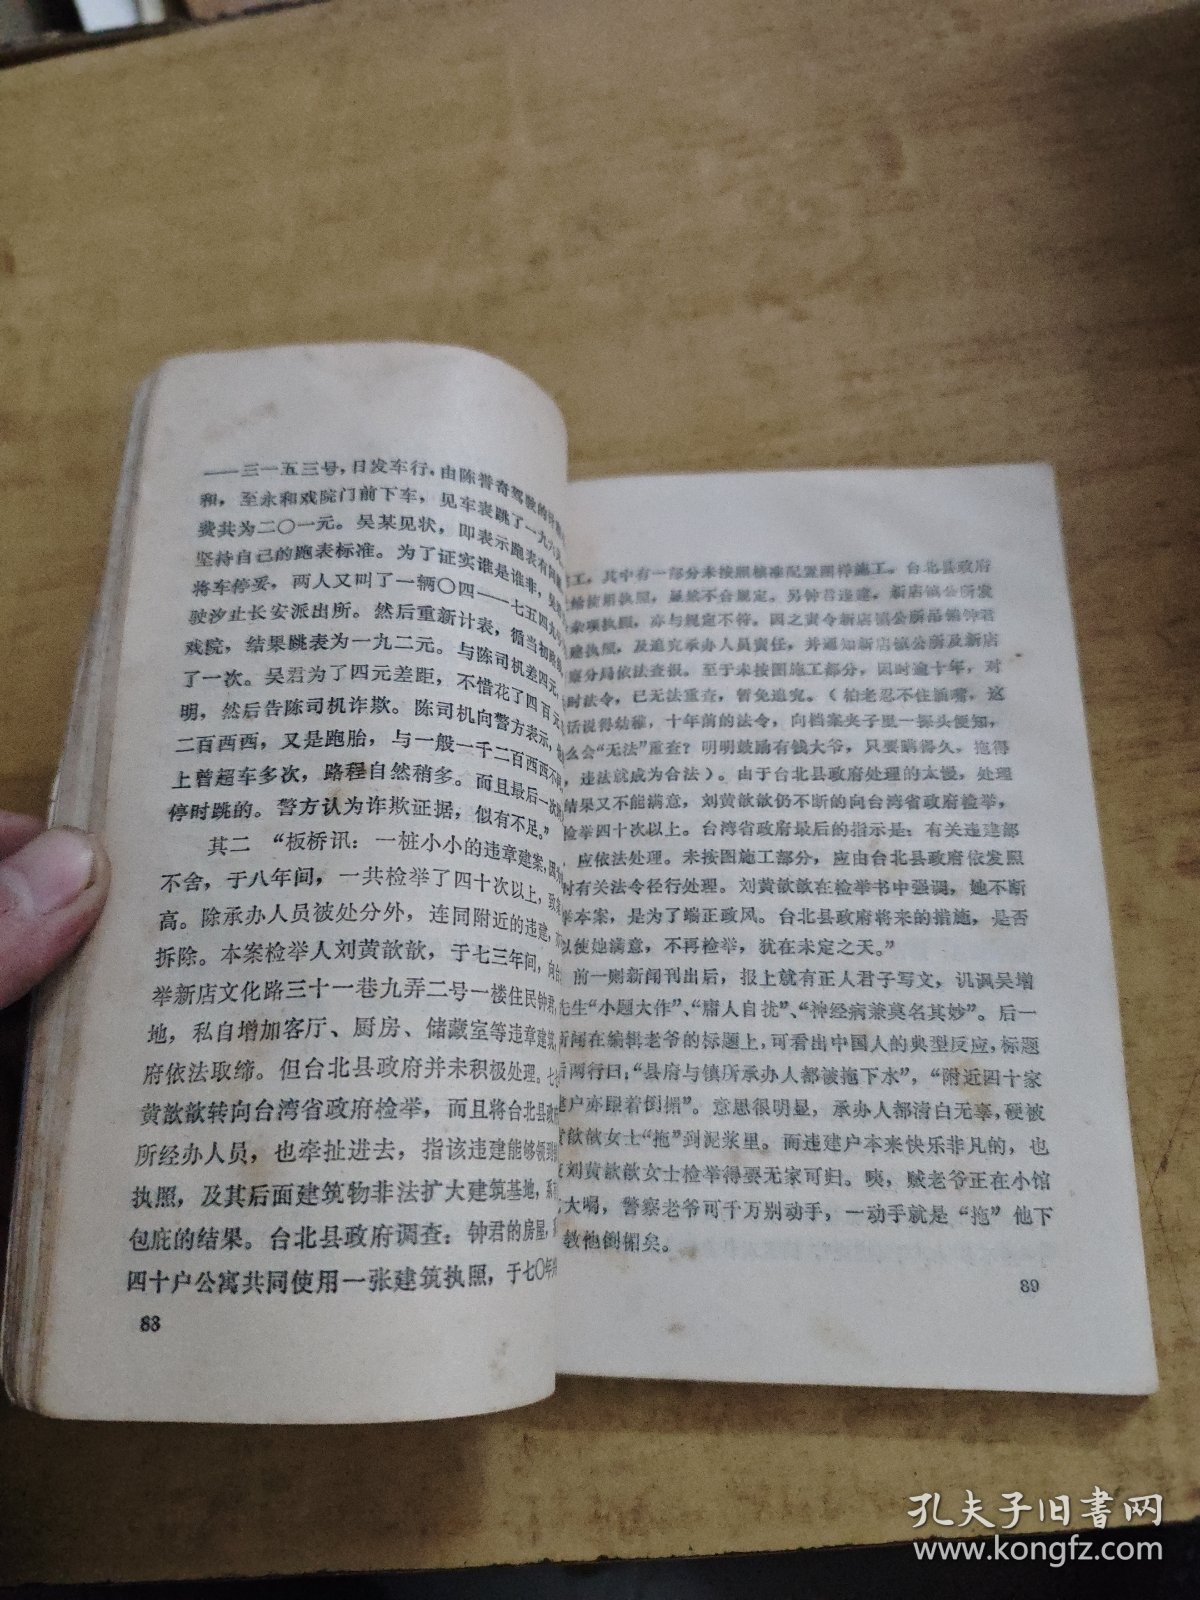 ——三一五三号，日发车行，由陈誉奇驾驶的
和，至永和戏院门前下车，见车表跳了一九六
费共为二〇一元。吴某见状，即表示跑表有问
坚持自己的跑表标准。为了证实谁是谁非，
将车停妥，两人又叫了一辆〇四——七五四九
驶汐止长安派出所。然后重新计表，循当初路
戏院，结果跳表为一九二元。与陈司机差四元，
了一次。吴君为了四元差距，不惜花了四百元
明，然后告陈司机诈欺。陈司机向警方表示，
二百西西，又是跑胎，与一般一千二百西西不
上曾超车多次，路程自然稍多。而且最后一次
停时跳的。警方认为诈欺证据，似有不足。”
其二 “板桥讯：一桩小小的违章建案，因
不舍，于八年间，一共检举了四十次以上，致
高。除承办人员被处分外，连同附近的违建，
拆除。本案检举人刘黄歆歆，于七三年间，向台
举新店文化路三十一巷九弄二号一楼住民钟君，
地，私自增加客厅、厨房、储藏室等违章建筑，
府依法取缔。但台北县政府并未积极处理。七
黄歆歆转向台湾省政府检举，而且将台北县政
所经办人员，也牵扯进去，指该违建能够领到
执照，及其后面建筑物非法扩大建筑基地，系
包庇的结果。台北县政府调查：钟君的房屋，
四十户公寓共同使用一张建筑执照，于七〇年
88
工，其中有一部分未按照核准配置图样施工。台北县政府
给使用执照，显然不合规定。另钟君违建，新店镇公所发
杂项执照，亦与规定不符。因之责令新店镇公所吊销钟君
建执照，及追究承办人员责任，并通知新店镇公所及新店
察分局依法查报。至于未按图施工部分，因时逾十年，对
时法令，已无法重查，暂免追究。（柏老忍不住插嘴，这
话说得幼稚，十年前的法令，向档案夹子里一探头便知，
么会“无法”重查？明明鼓励有钱大爷，只要瞒得久，拖得
，违法就成为合法）。由于台北县政府处理的太慢，处理
结果又不能满意，刘黄歆歆仍不断的向台湾省政府检举，
检举四十次以上。台湾省政府最后的指示是：有关违建部
，应依法处理。未按图施工部分，应由台北县政府依发照
时有关法令径行处理。刘黄歆歆在检举书中强调，她不断
举本案，是为了端正政风。台北县政府将来的措施，是否
以使她满意，不再检举，犹在未定之天。”
前一则新闻刊出后，报上就有正人君子写文，讥讽吴增
先生“小题大作”、“庸人自扰”、“神经病兼莫名其妙”。后一
新闻在编辑老爷的标题上，可看出中国人的典型反应，标题
后两行曰：“县府与镇所承办人都被拖下水”，“附近四十家
建户亦跟着倒楣”。意思很明显，承办人都清白无辜，硬被
黄歆歆女士“拖”到泥浆里。而违建户本来快乐非凡的，也
刘黄歆歆女士检举得要无家可归。咦，贼老爷正在小馆
大喝，警察老爷可千万别动手，一动手就是“拖”他下
教他倒楣矣。
89
孔夫子旧书网
www.kongfz.com